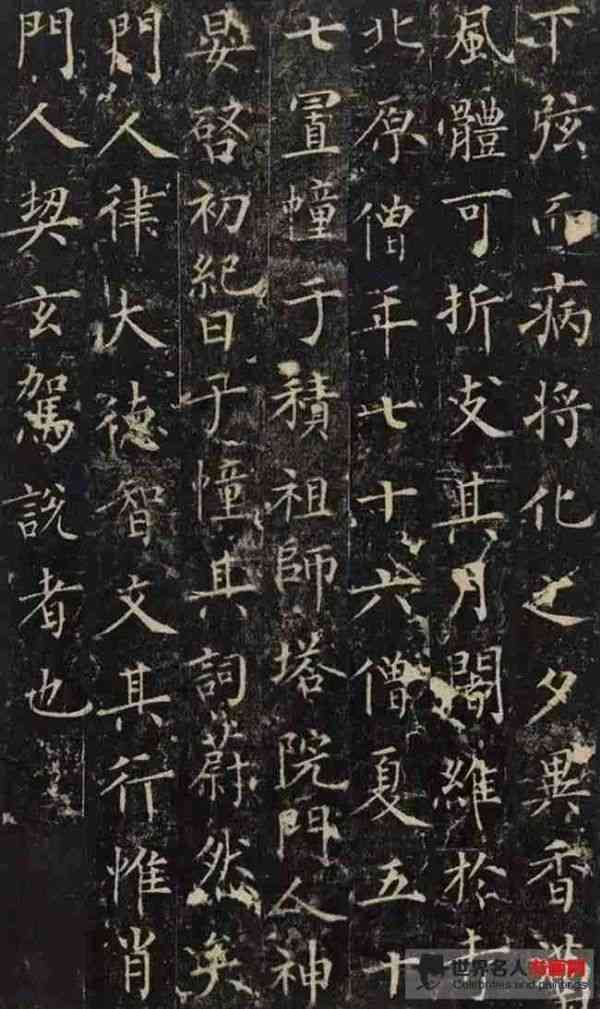 下弦而病将化之夕異香滿
風體可折支其月闍維於寺
北原僧年七十六僧夏五十
七置幢于積祖師塔院門人神
晏啓初紀日子幢其詞蔚然矣
門人律大德智文其行惟肖
門人契玄駕說者也
世界名人书画网
Celebrities and paintings